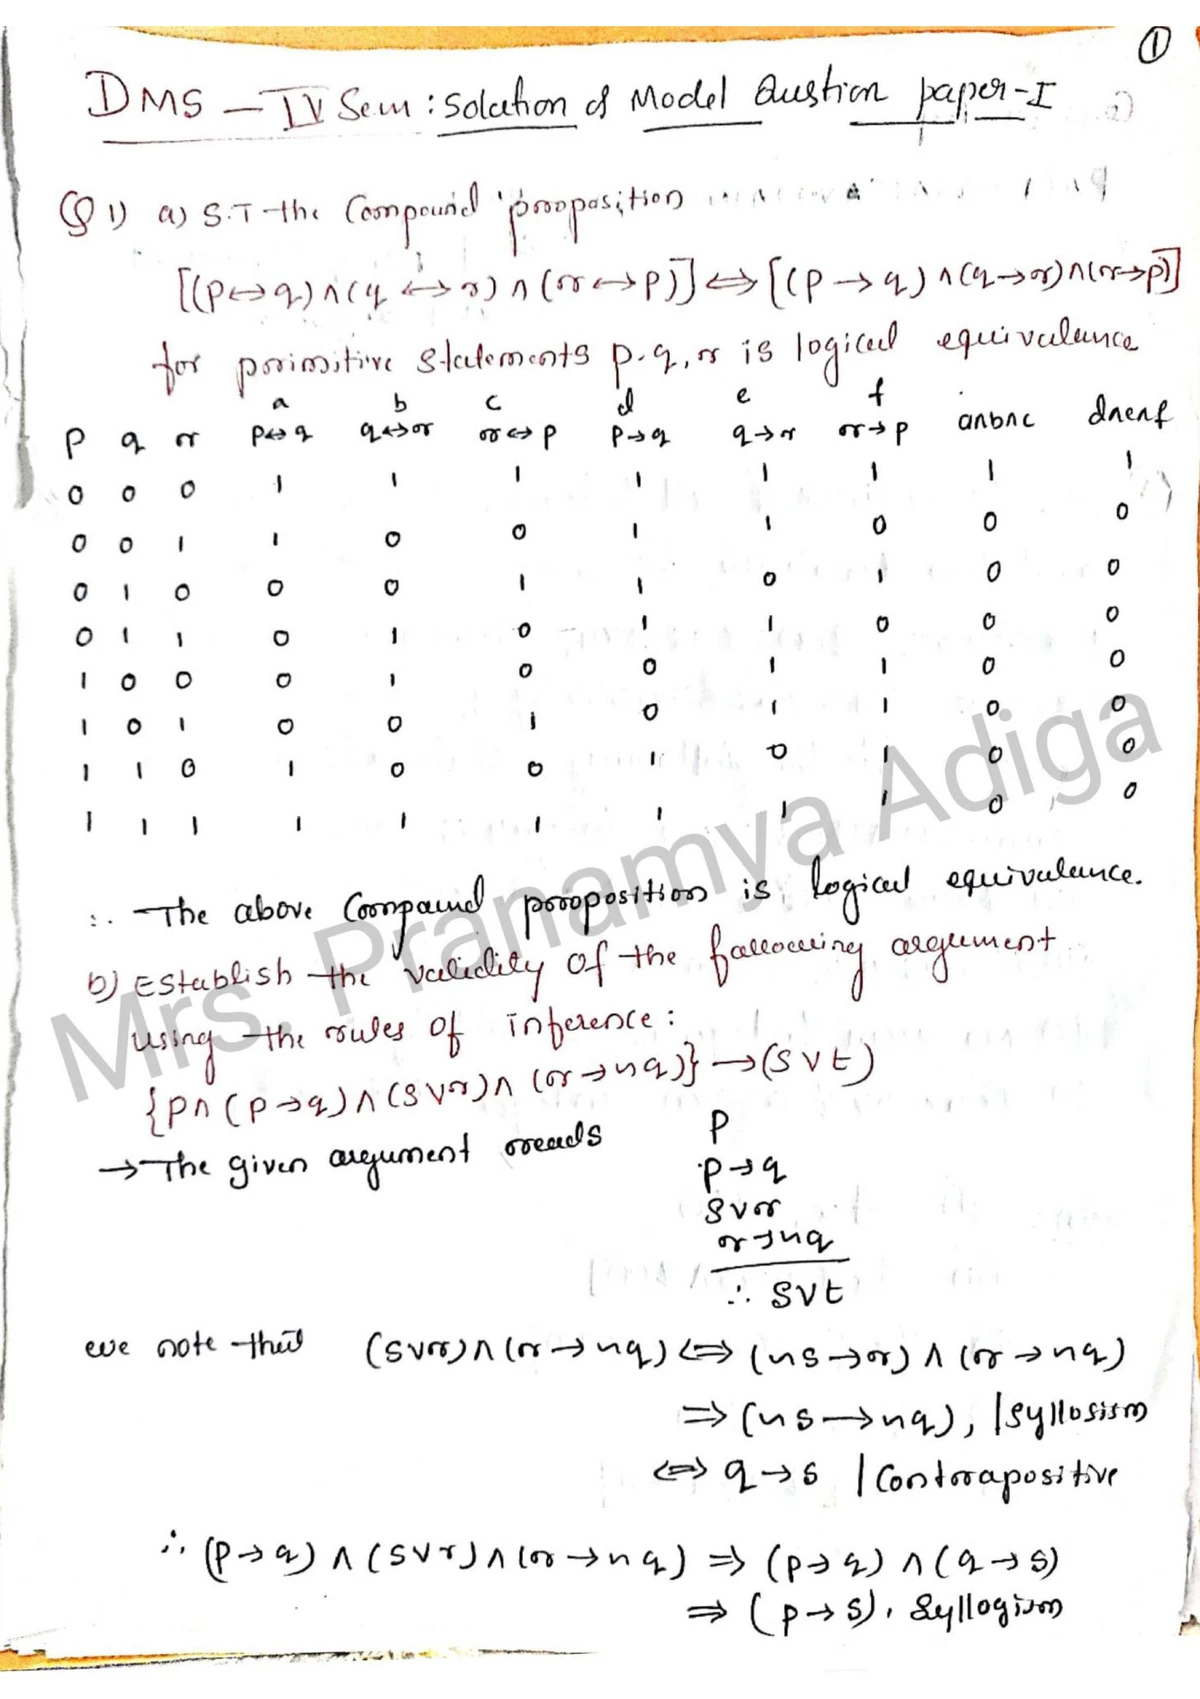 ①
DMS – IV Sem : Solution of Model Qustion paper-I
Q 1) a) S.T the Compound proposition
[(p↔q)∧(q↔r)∧(r↔p)]⇔[(p→q)∧(q→r)∧(r→p)]
for primitive statements p.q,r is logical equivalence
a b c d e f
p q r p↔q q↔r r↔p p→q q→r r→p a∧b∧c d∧e∧f
0 0 0 1 1 1 1 1 1 1 1
0 0 1 1 0 0 1 1 0 0 0
0 1 0 0 0 1 1 0 1 0 0
0 1 1 0 1 0 1 1 0 0 0
1 0 0 0 1 0 0 1 1 0 0
1 0 1 0 0 1 0 1 1 0 0
1 1 0 1 0 0 1 0 1 0 0
1 1 1 1 1 1 1 1 1 0 0
∴ The above Compound proposition is logical equivalence.
b) Establish the validity of the following argument
using the rules of inference:
{p∧(p→q)∧(s∨r)∧(r→~q)}→(s∨t)
→ The given argument reads p
p→q
s∨r
r→~q
∴ s∨t
we note that (s∨r)∧(r→~q)⇔(~s→r)∧(r→~q)
⇒(~s→~q), |Syllosism
⇔ q→s |Contrapositive
∴ (p→q)∧(s∨r)∧(r→~q)⇒(p→q)∧(q→s)
⇒(p→s), Syllogism
Mrs. Pranamya Adiga